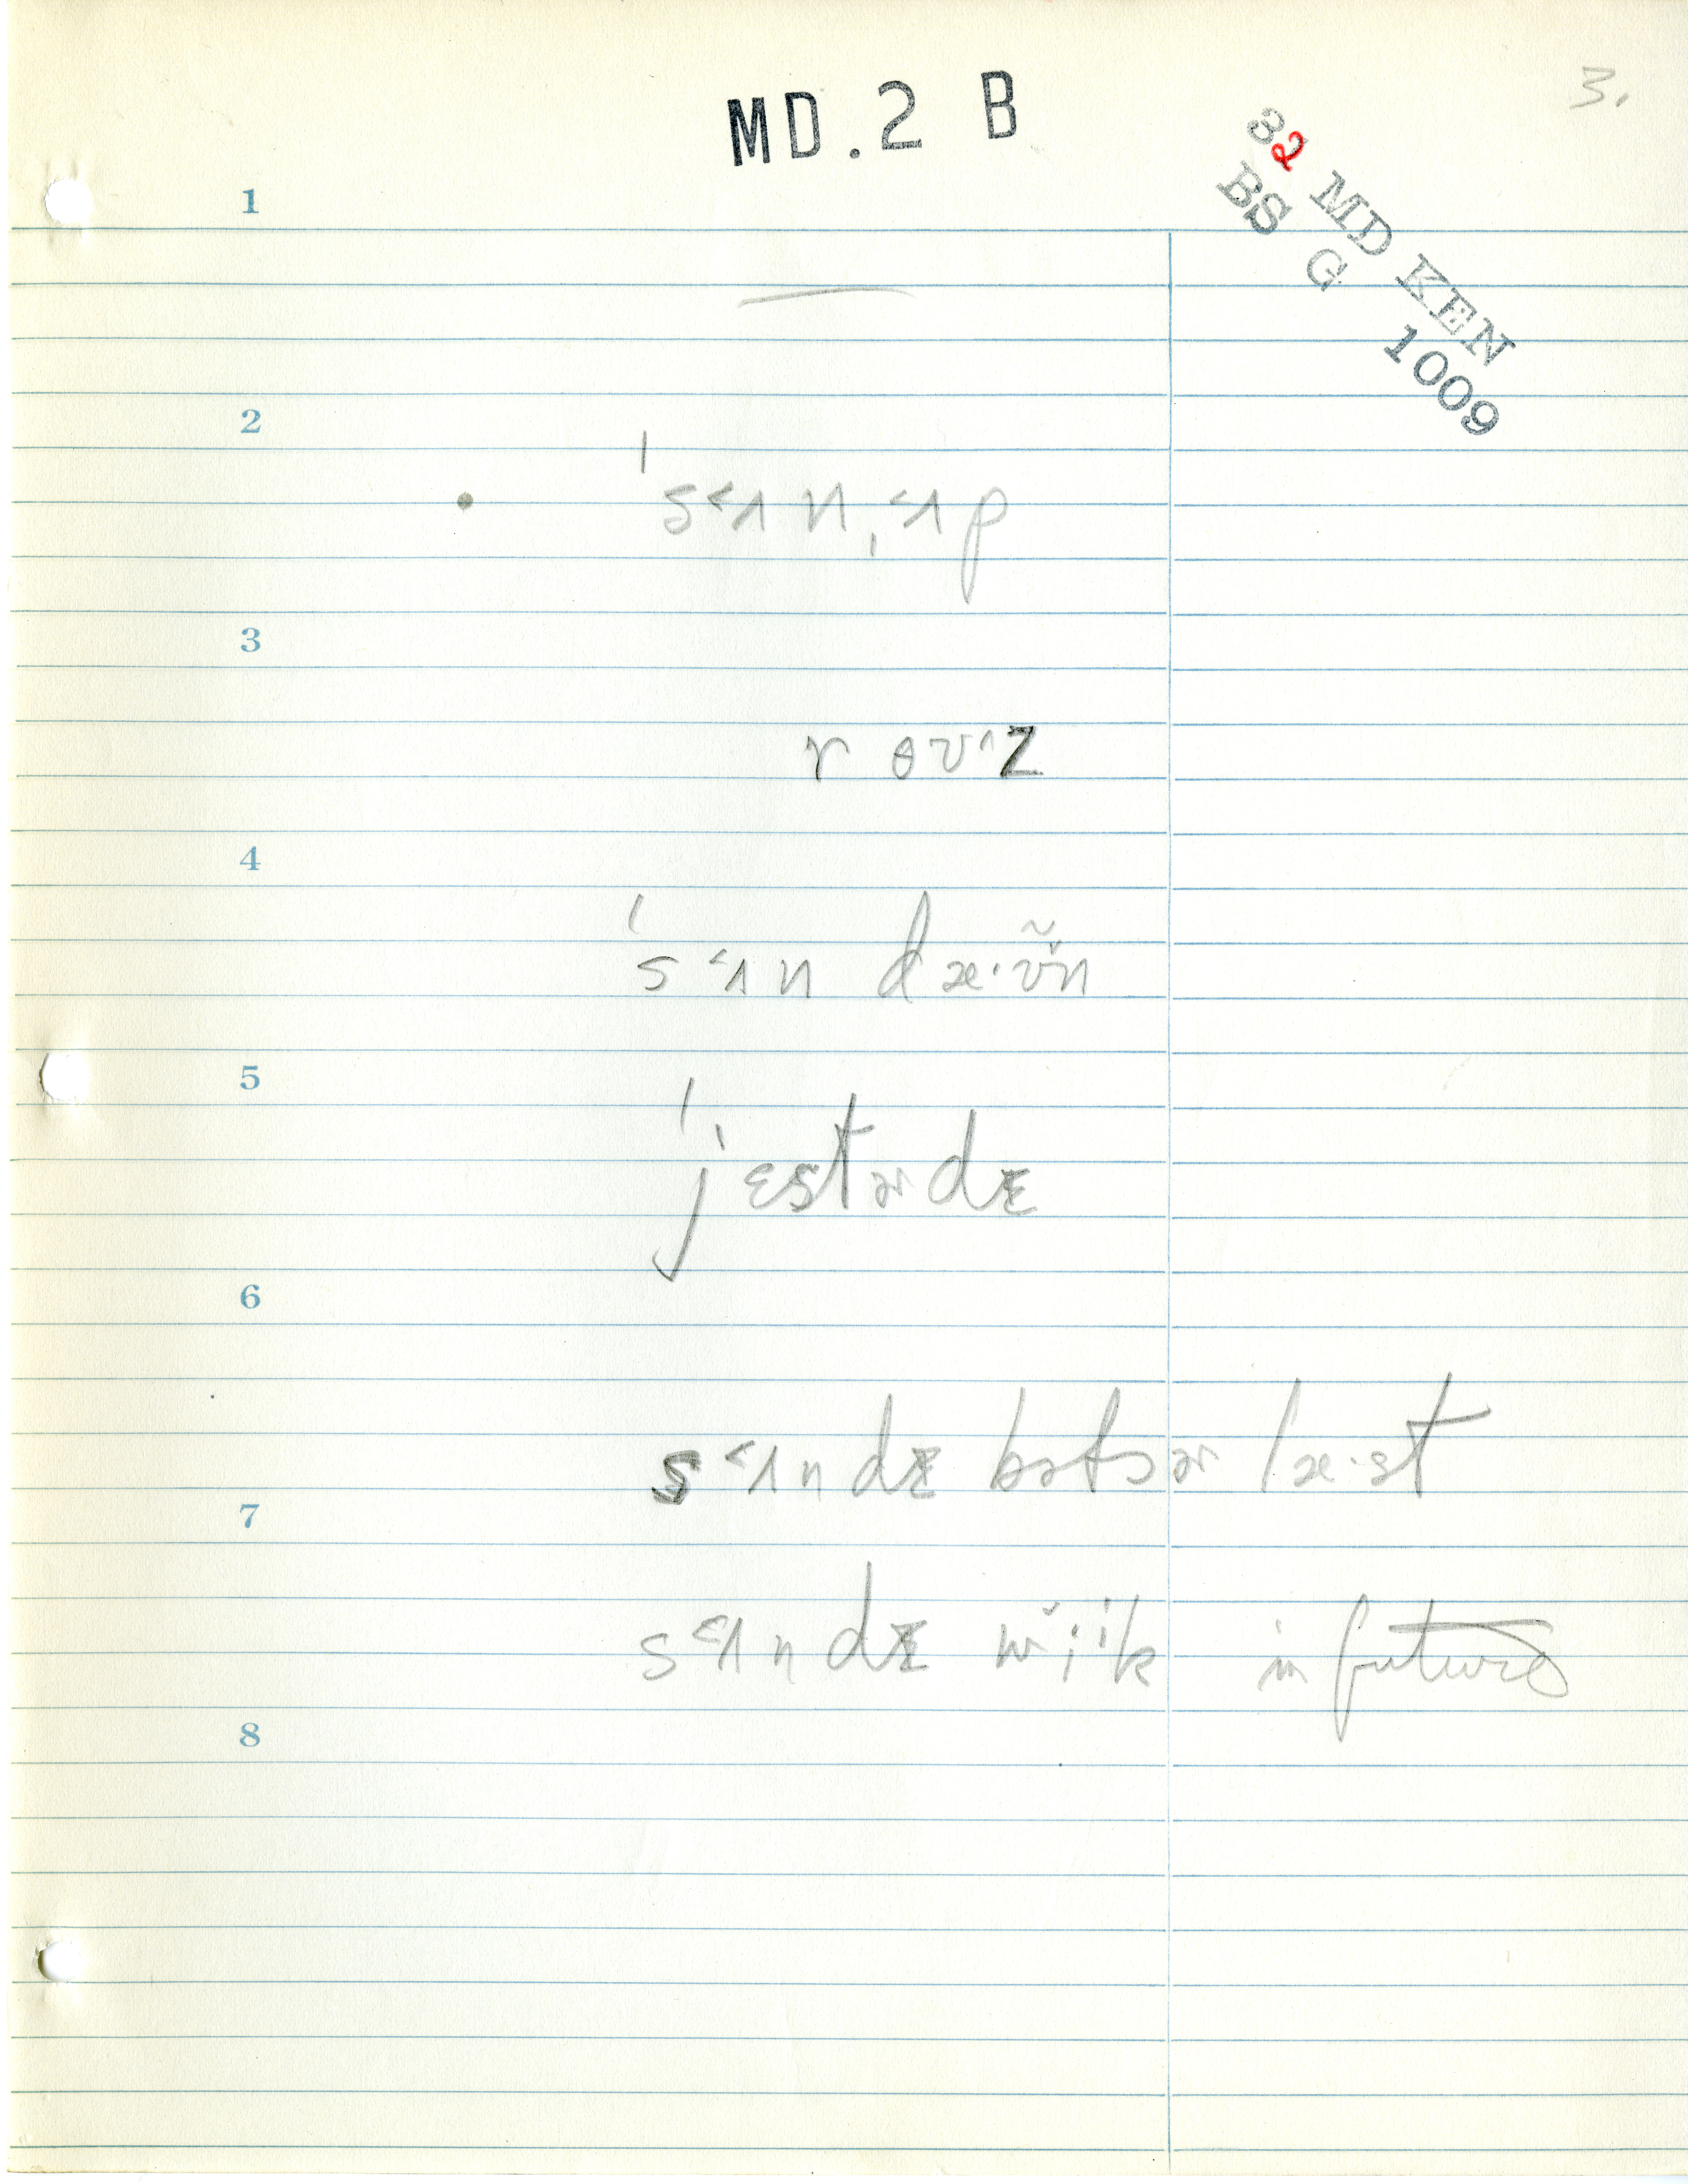 MD.2 B
3.
32 MD KEN
BS G
1009
1
2
ˈs˂ʌn ˌ˂ʌp
3
r ɵʊ˄z
4
ˈs˂ʌn dæ·ʊ̃n
5
ˈjɛstɚdɪ
6
s˂ʌndɪ
læ·st
7
s˂ʌndɪ wiik in future
8